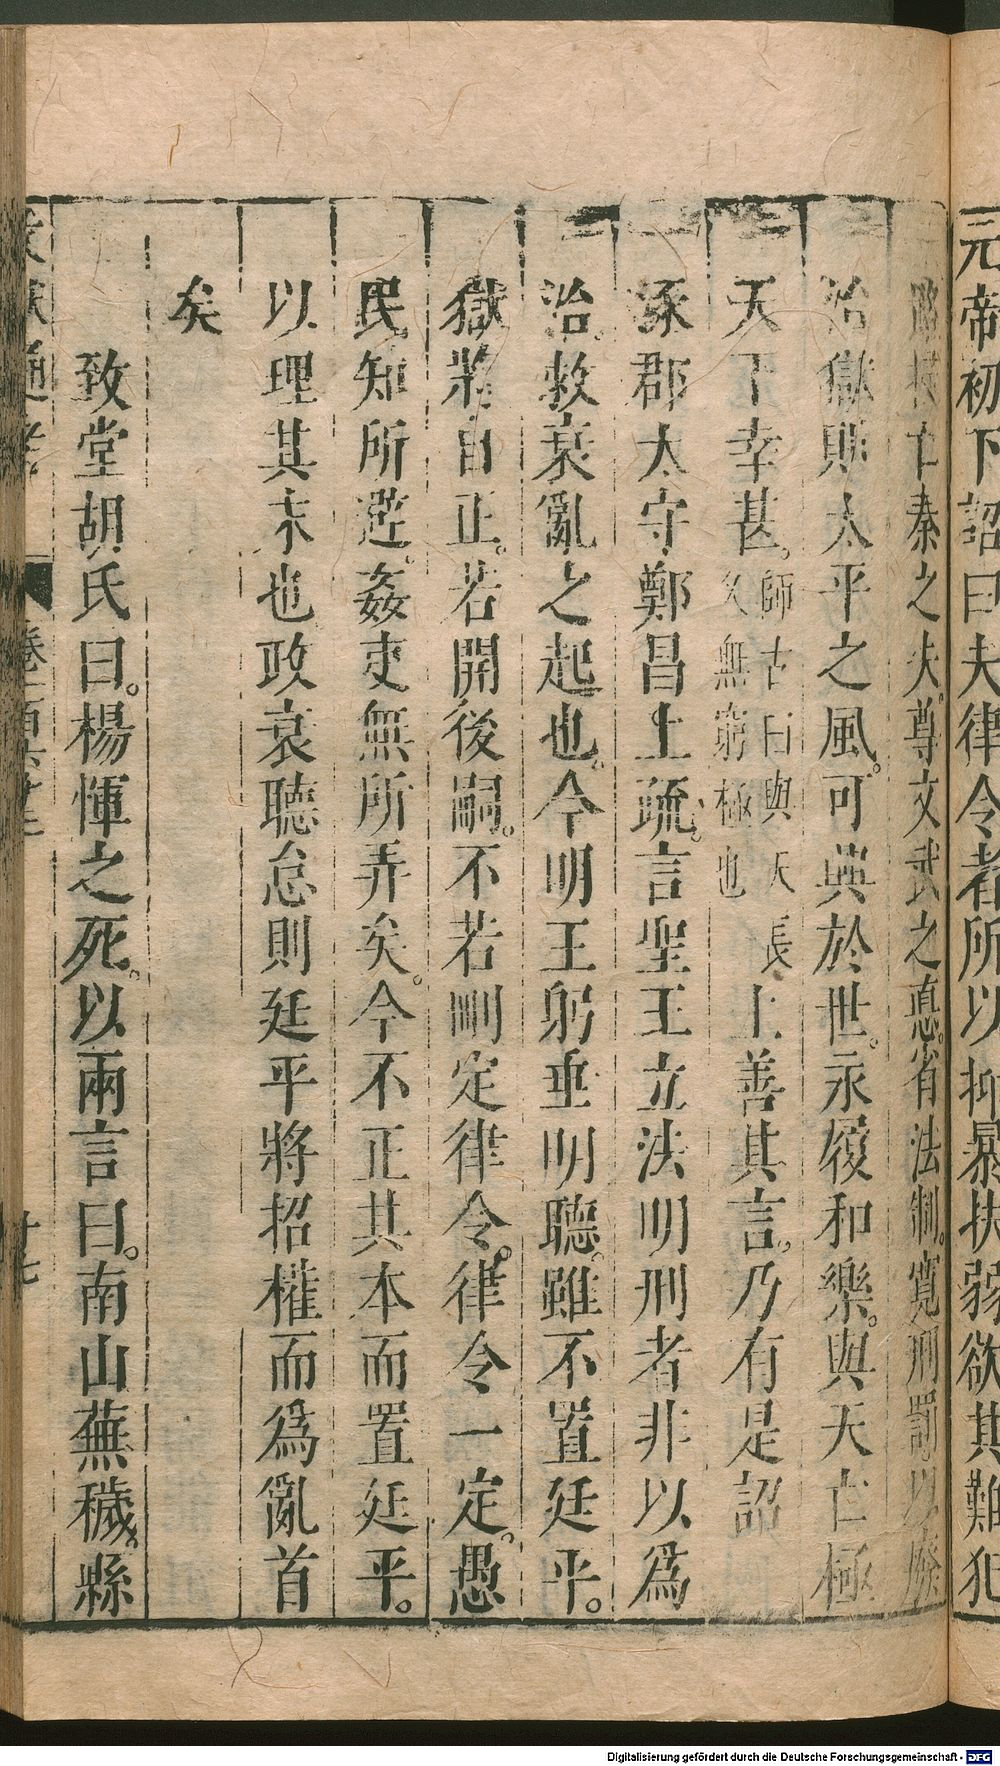 元帝初下詔曰夫律令者所以抑暴扶弱欲其難犯
亡秦之失。尊文武之惪。省法制。寬刑罰以廢
治獄則太平之風。可興於世。永履和樂。與天亡極
天下幸甚。師古曰與天長久無窮極也上善其言。乃有是詔
涿郡太守鄭昌上疏。言聖王立法明刑者非以為
治。救衰亂之起也。今明王躬垂明聽。雖不置廷平。
獄將自正。若開後嗣。不若刪定律令。律令一定。愚
民知所避。姦吏無所弄矣。今不正其本而置廷平。
以理其末也政衰聽怠則廷平將招權而為亂首
矣
致堂胡氏曰。楊惲之死。以兩言曰。南山蕪穢。縣
文獻通考 卷一百六十三 廿七
Digitalisierung gefördert durch die Deutsche Forschungsgemeinschaft - DFG